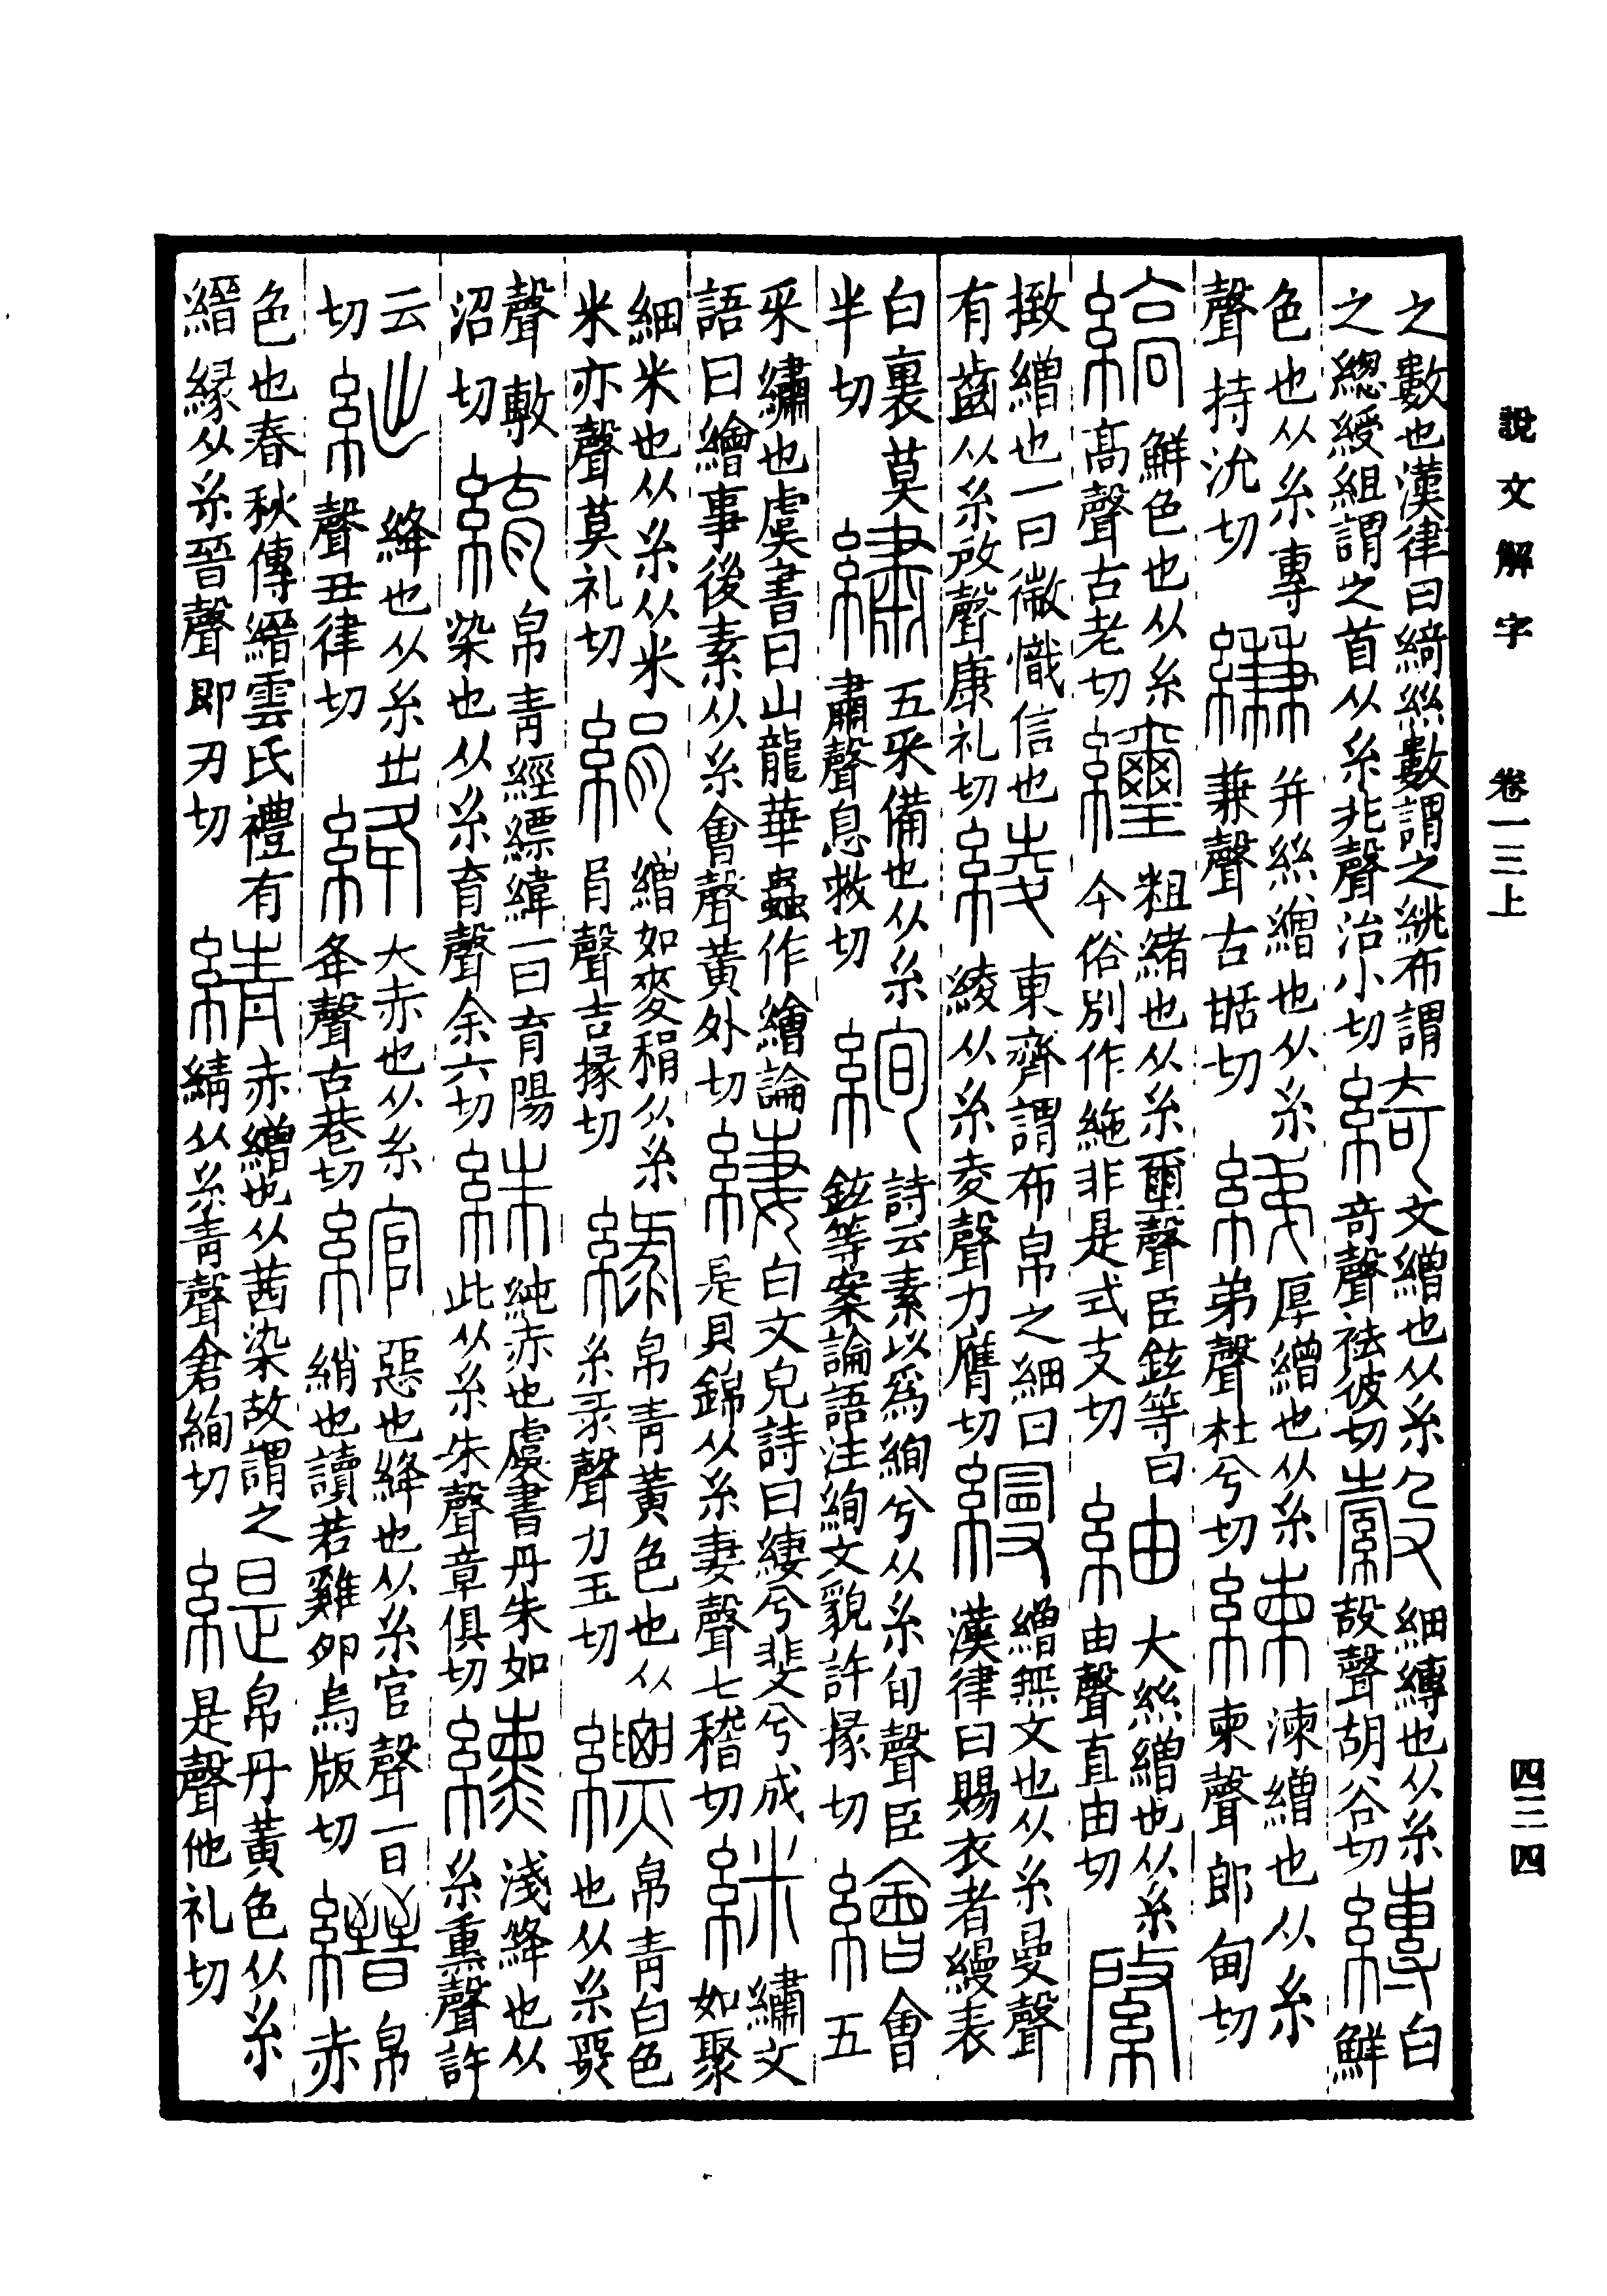 說文解字　卷一三上　四三四
之數也漢律曰綺絲數謂之絩布謂之緫綬組謂之首从糸兆聲治小切　綺　文繒也从糸奇聲袪彼切　縠　細縛也从糸㱿聲胡谷切　縳　白鮮
色也从糸專聲持沇切　縑　并絲繒也从糸兼聲古甛切　綈　厚繒也从糸弟聲杜兮切　練　湅繒也从糸柬聲郎甸切
縞　鮮色也从糸高聲古老切　䌳　粗緒也从糸壐聲臣鉉等曰今俗別作絁非是式支切　紬　大絲繒也从糸由聲直由切　綮
緻繒也一曰徽幟信也有齒从糸㪃聲康礼切　綾　東齊謂布帛之細曰綾从糸夌聲力膺切　縵　繒無文也从糸曼聲漢律曰賜衣者縵表
白裏莫半切　繡　五采備也从糸肅聲息救切　絢　詩云素以爲絢兮从糸旬聲臣鉉等案論語注絢文貌許掾切　繪　會五
采繡也虞書曰山龍華蟲作繪論語曰繪事後素从糸會聲黃外切　緀　白文皃詩曰緀兮斐兮成是貝錦从糸妻聲七稽切　絊　繡文如聚
細米也从糸从米米亦聲莫礼切　絹　繒如麥䅌从糸肙聲吉掾切　綠　帛青黃色也从糸彔聲力玉切　縹　帛青白色也从糸㶾
聲敷沼切　綃　帛青經縹緯一曰育陽染也从糸育聲余六切　絑　純赤也虞書丹朱如此从糸朱聲章俱切　纁　淺絳也从糸熏聲許
云切　絀　絳也从糸出聲丑律切　絳　大赤也从糸夅聲古巷切　綰　惡也絳也从糸官聲一曰綃也讀若雞卵烏版切　縉　帛赤
色也春秋傳縉雲氏禮有縉緣从糸晉聲即刃切　綪　赤繒也从茜染故謂之綪从糸青聲倉絢切　緹　帛丹黃色从糸是聲他礼切